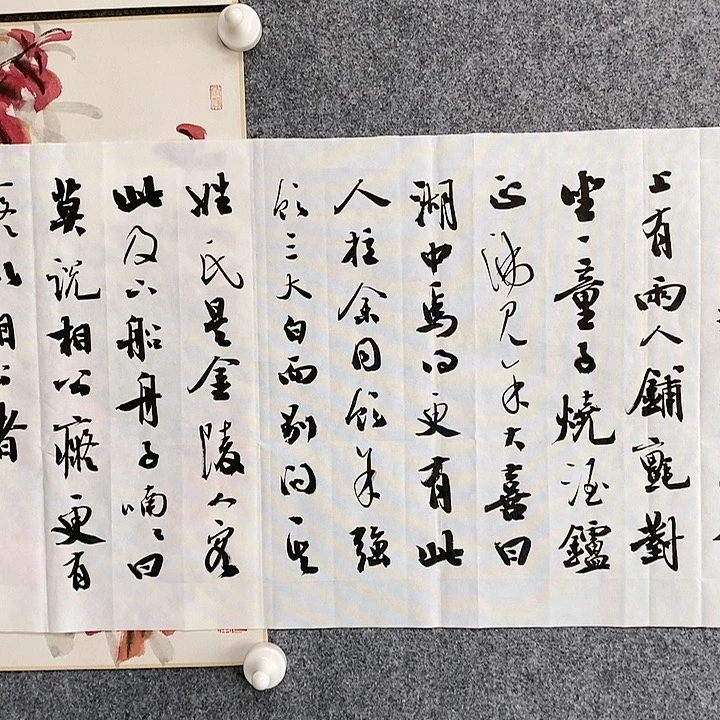 上有兩人鋪氈對
坐一童子燒酒鑪
正沸見余大喜曰
湖中焉得更有此
人拉余同飲余強
飲三大白而別問其
姓氏是金陵人客
此及下船舟子喃〻曰
莫說相公癡更有
癡似相公者